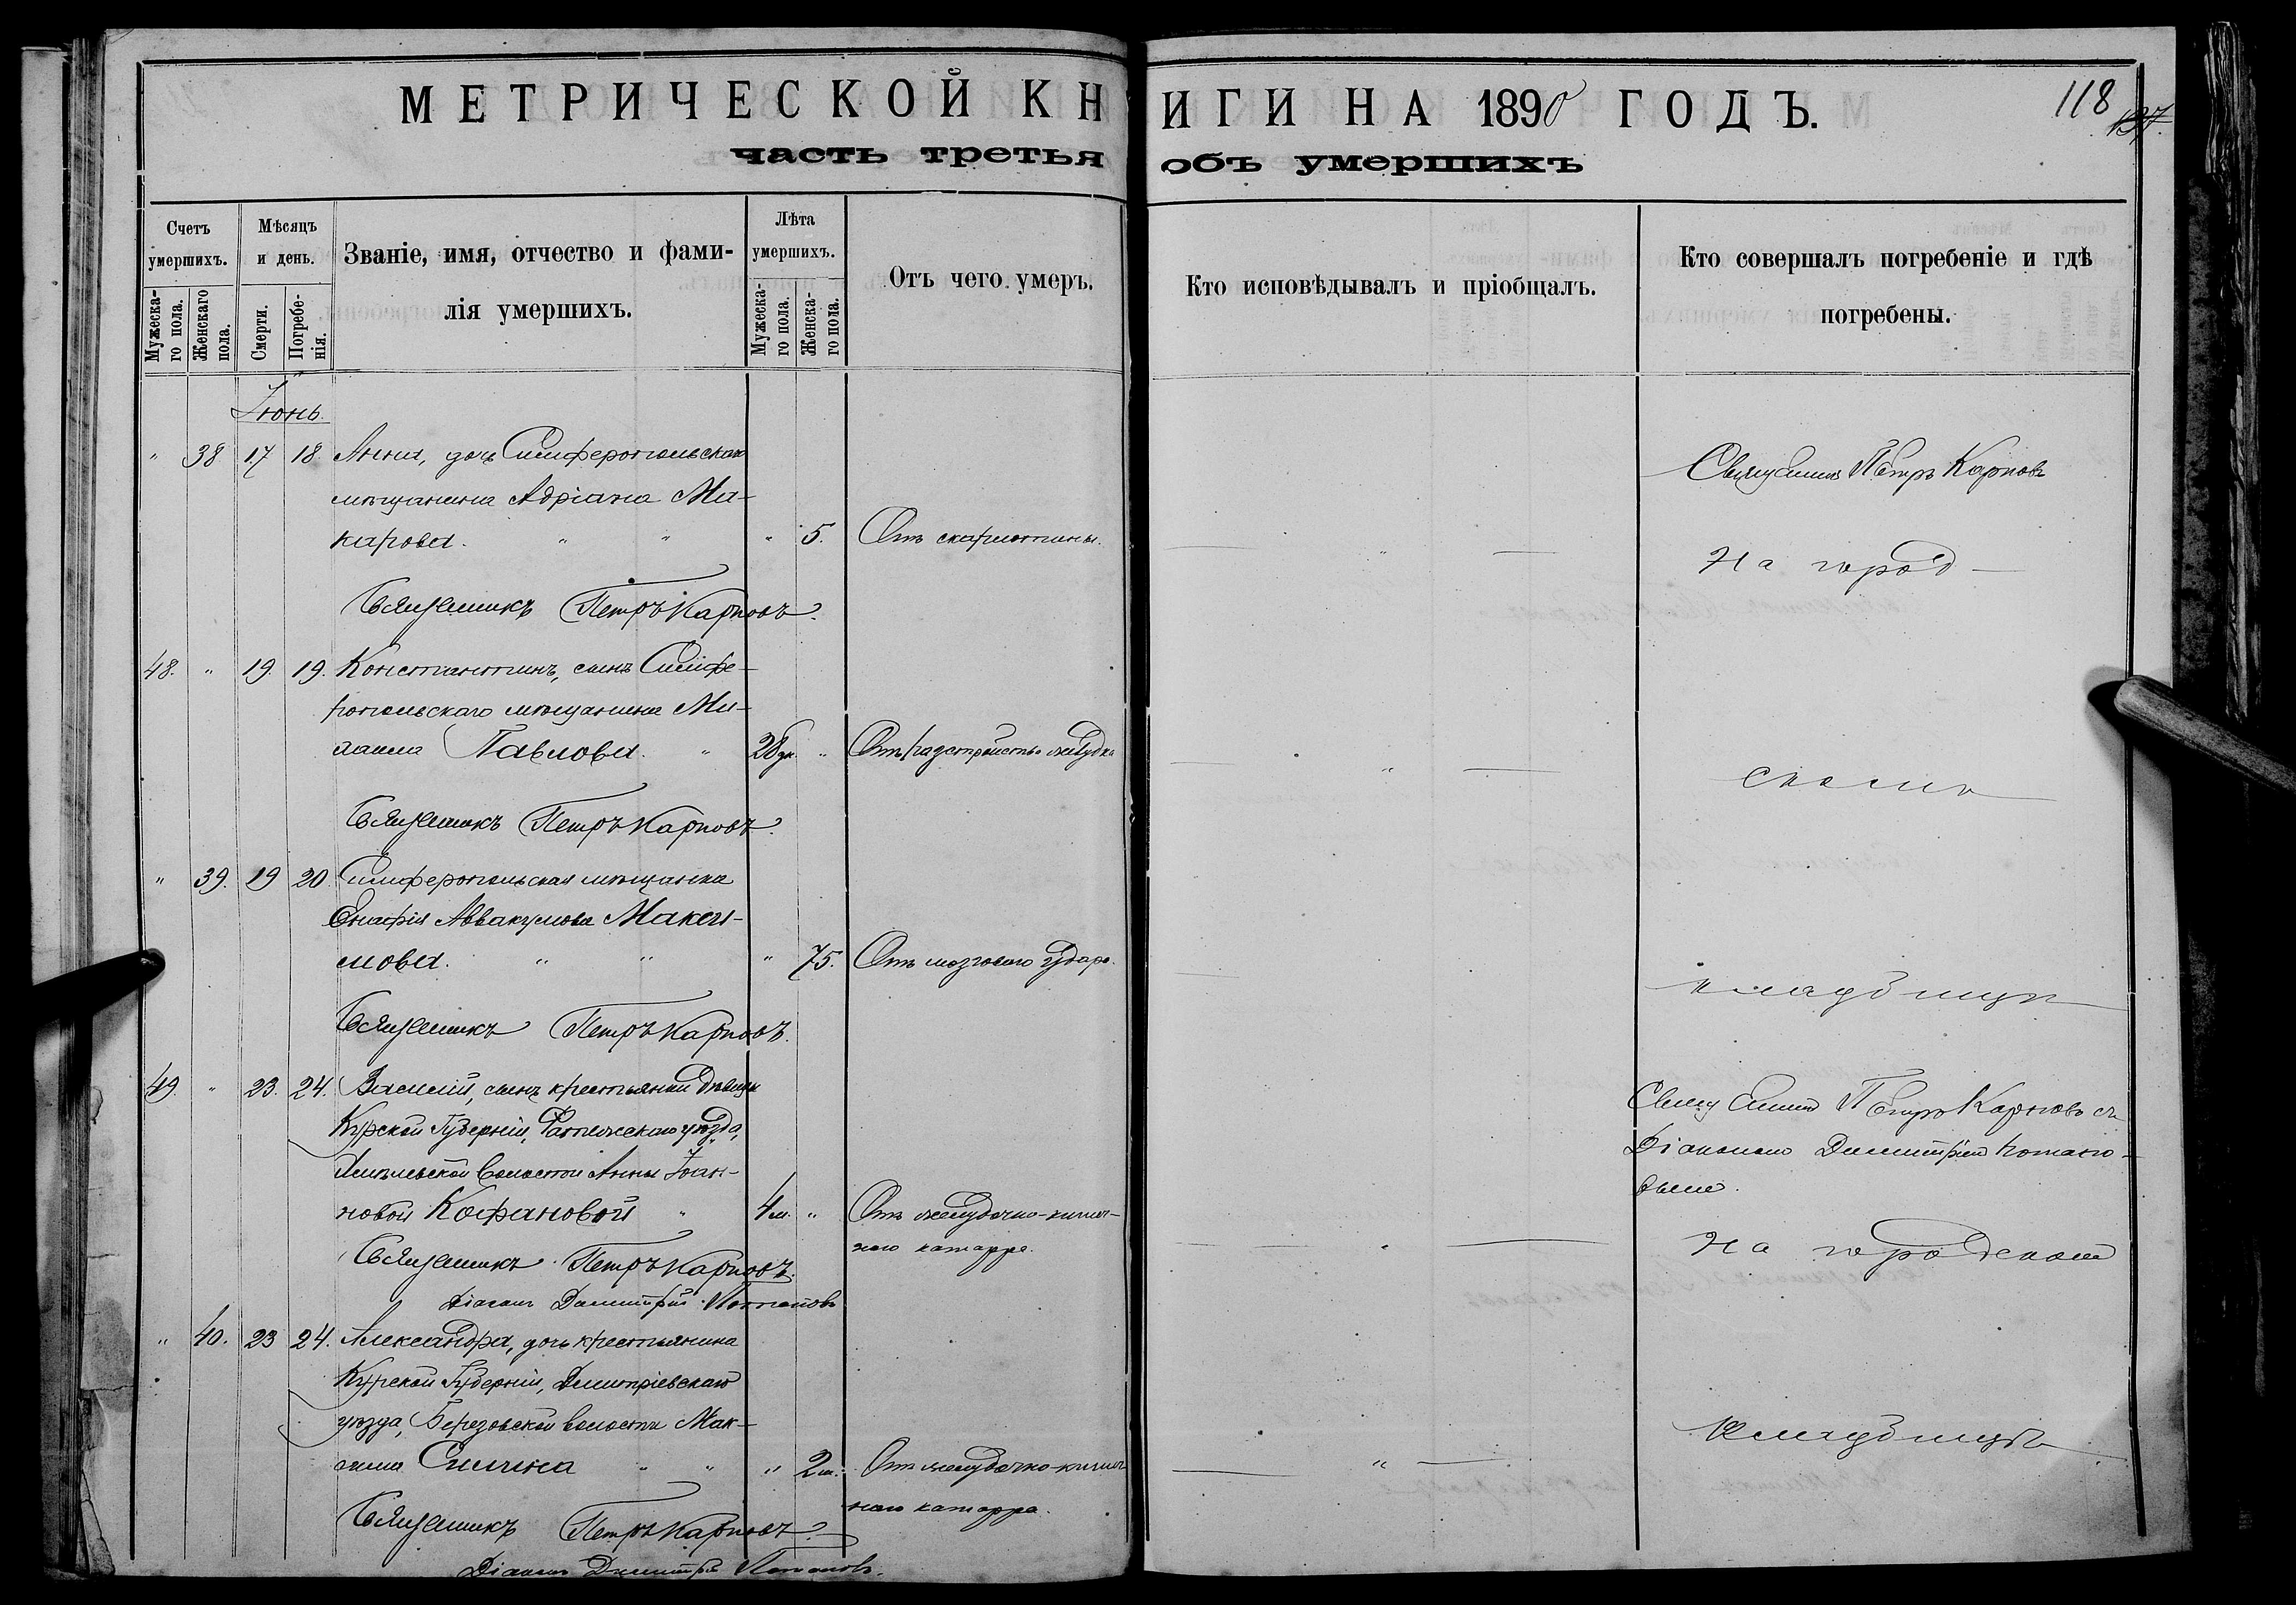 МЕТРИЧЕСКОЙ КНИГИ НА 1890 ГОДЪ.
118
137.
часть третья объ умершихъ
Счетъ умершихъ.
Мужеска-го пола.
Женскаго пола.
Мѣсяцъ и день.
Смерти.
Погребе-нія.
Званіе, имя, отчество и фами-
лія умершихъ.
Лѣта умершихъ.
Мужеска-го пола.
Женска-го пола.
Отъ чего умеръ.
Кто исповѣдывалъ и пріобщалъ.
Кто совершалъ погребеніе и гдѣ
погребены.
Іюнь
" 38 17 18 Анна, дочь Симферопольскаго
мѣщанина Адріана Ма-
карова. " " " 5. Отъ скарлатины.
Священникъ Петръ Карповъ.
Священникъ Петръ Карповъ
На город-
48. " 19. 19. Константинъ, сынъ Симфе-
ропольскаго мѣщанина Ми-
хаила Павлова. " 28 дн. " Отъ разстройства желудка
скомъ
Священникъ Петръ Карповъ.
" 39. 19 20. Симферопольская мѣщанка
Аввакумова Макси-
мова. " " " 75. Отъ мозгового удара.
кладбищѣ
Священникъ Петръ Карповъ.
49. " 23. 24. Василій, сынъ крестьянки дѣвицы
Курской Губерніи, Фатежскаго уѣзда,
волости Анны Іоан-
новой Кофановой " 4 м. " Отъ желудочно-кишеч-
наго катарра.
Священникъ Петръ Карповъ.
Діаконъ Димитрій Потаповъ
Священникъ Петръ Карповъ съ
Діакономъ Димитріемъ Потапо-
вымъ.
На городскомъ
" 40. 23 24. Александра, дочь крестьянина
Курской Губерніи, Димитріевскаго
уѣзда, Березовской волости Мак-
сима Енина " " " 2 м. Отъ желудочно-кишеч-
наго катарра.
кладбищѣ
Священникъ Петръ Карповъ.
Діаконъ Димитрій Потаповъ.